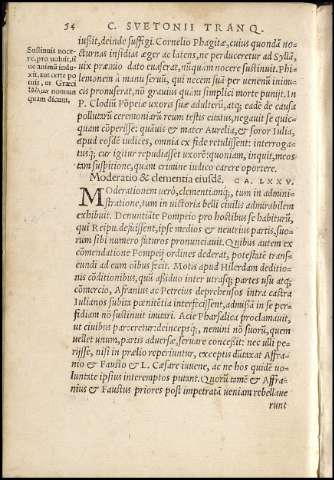 54 C. SVETONII TRANQ.
iußit, deinde suffigi. Cornelio Phagitæ, cuius quondã no-
cturnas insidias æger ac latens, ne perduceretur ad Syllã,
uix præmio dato euaserat, nũquam nocere sustinuit. Phi-
lemonem à manu seruũ, qui necem suã per uenenũ inimi-
cis promiserat, nõ grauius quàm simplici morte punijt. In
P. Clodiũ Põpeiæ uxoris suæ adulterũ, atq; eadẽ de causa
pollutarũ ceremoniarũ reum testis citatus, negauit se quic-
quam cõperisse: quãuis & mater Aurelia, & soror Iulia,
apud eosdẽ iudices, omnia ex fide retulissent: interroga-
tusq; cur igitur repudiasset uxorẽ: quoniam, inquit, meos
tam suspitione, quàm crimine iudico carere oportere.
Sustinuit noce
re. pro uoluit, si
ue animũ indu-
xit, aut certe po
tuit,
quam dicunt.
Moderatio & clementia eiusdẽ. CA. LXXV.
MOderationem uerò, clementiamq́;, tum in admini-
stratione, tum in uictoria belli ciuilis admirabilem
exhibuit. Denuntiãte Pompeio pro hostibus se habiturũ,
qui Reipu. defuissent, ipse medios & neutrius partis, suo-
rum sibi numero futuros pronunciauit. Quibus autem ex
cõmendatione Pompeij ordines dederat, potestatẽ trans-
eundi ad eum oĩbus fecit. Motis apud Hilerdam deditio-
nis cõditionibus, cũ assiduo inter utrasq; partes usu atq;
cõmercio, Afranius & Petreius deprehensos intra castra
Iulianos subita pœnitẽtia interfecissent, admissã in se per-
fidiam nõ sustinuit imitari. Acie Pharsalica proclamauit,
ut ciuibus parceretur: deincepsq́;, nemini nõ suorũ, quem
uellet unum, partis aduersæ, seruare concessit: nec ulli pe-
rijsse, nisi in prælio reperiuntur, exceptis dũtaxat Affra-
nio & Fausto & L. Cæsare iuuene, ac ne hos quidẽ uo-
luntate ipsius interemptos putant. Quorũ tamẽ & Affra-
nius & Faustus priores post impetratã ueniam rebellaue
runt